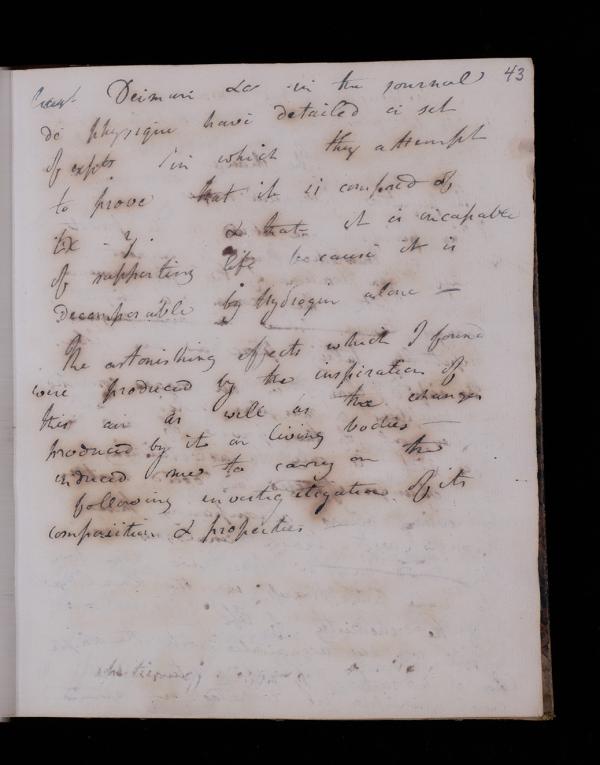 43
Deiman &c in the journal
de physique have detailed a set
of expts in which they attempt
to prove that it is composed of
Ox - y. & that it is incapable
of supporting life because it is
Decomposable by Hydrogen alone —
The astonishing effects which I found
were produced by the inspiration of
this air as well as the changes
produced by it on living bodies —
induced me to carry on the
following investigation of its
composition & properties